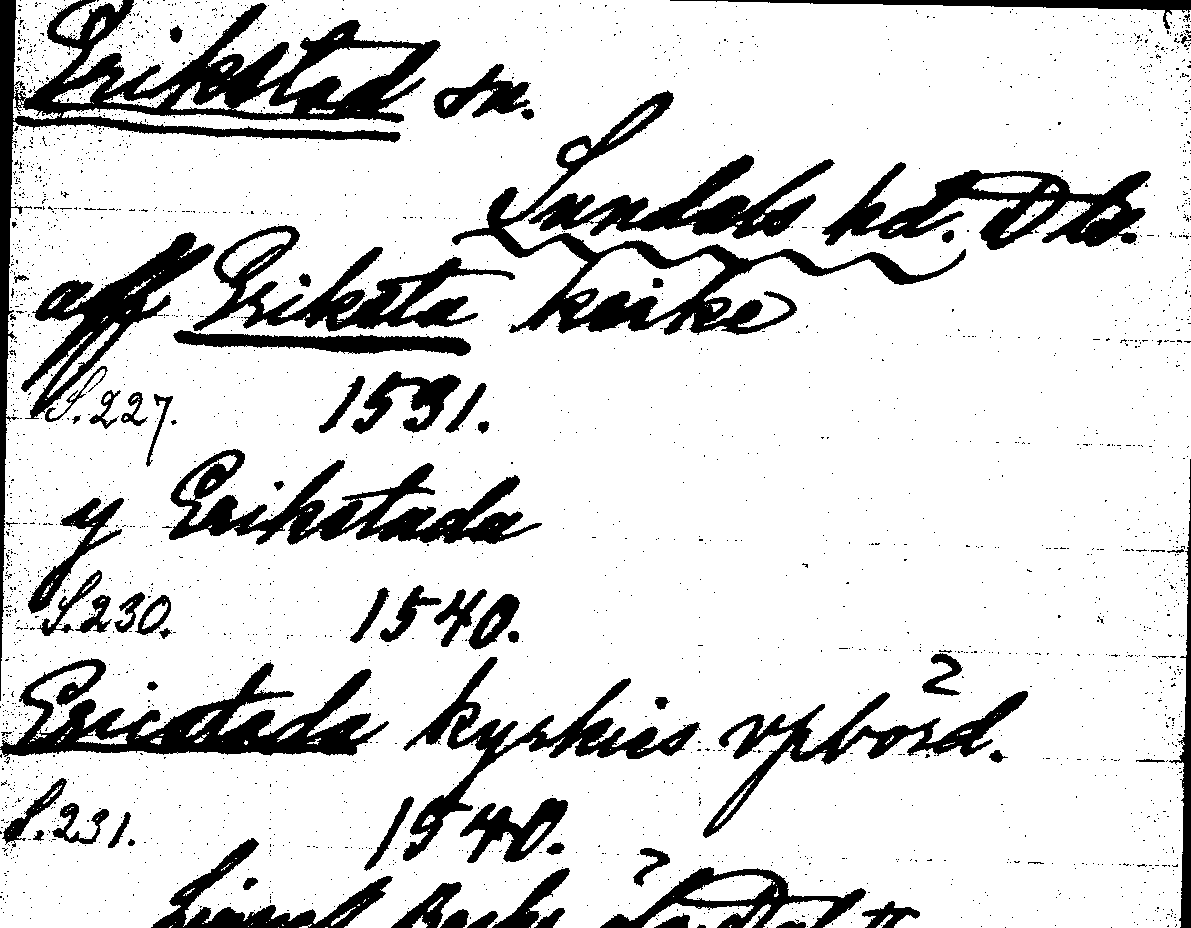 Erikstad sn.
Sundals hd. Dls.
aff Eriksta kirke
S. 227. 1531.
y Erikstada
S. 230. 1540.
Ericstada kyrkies vpbörd.
S. 231. 1540.